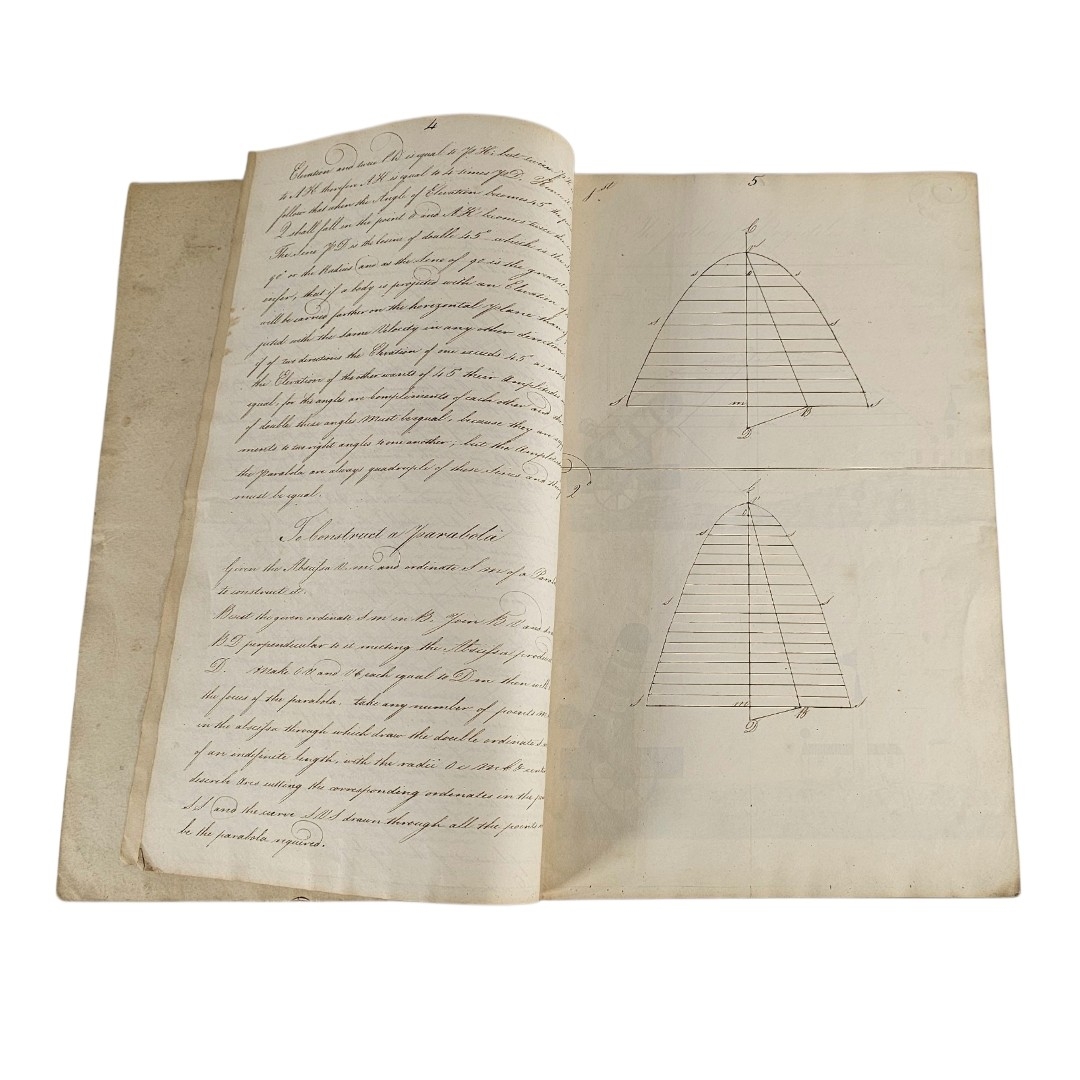 4
Elevation and twice Ph is equal to PH; but twice
to AK therefore AK is equal to 4 times PD. Hence
follow that when the Angle of Elevation becomes 45° the
Q shall fall in the point D and AK becomes twice the
The Line PD is the Cosine of double 45° which is the
90° or the Radius and as the Sine of 90 is the greatest
infer, that if a body is projected with an Elevation
will be carried farther on the horezontal plane than
jected with the same Velocity in any other direction
if of two directions the Elevation of one exceeds 45° as much
the Elevation of the other wants of 45° their Amplitudes
equal, for the angles are Complements of each other and
of double these angles must be equal, because they are
ments to two right angles to one another; but the Amplitudes
the Parabola are always quadruple of these Sines and
must be equal.
To Construct a parabola
Given the Abscissa V m and ordinate S m of a
to construct it.
Bisect the given ordinate S m in B. Join B V and
BD perpendicular to it meeting the Abscissa produced
D. make C V and V o each equal to D m then will
the focus of the parabola, take any number of points
in the abscissa through which draw the double ordinates
of an indefinite length, with the radii
describe Arcs cutting the corresponding ordinates in the
S S and the curve S V S drawn through all the points
be the parabola required.
5
1st
C
V
s
s
o
s
s
S
m
B
s
D
2°
C
V
s
s
s
s
S
m
B
s
D